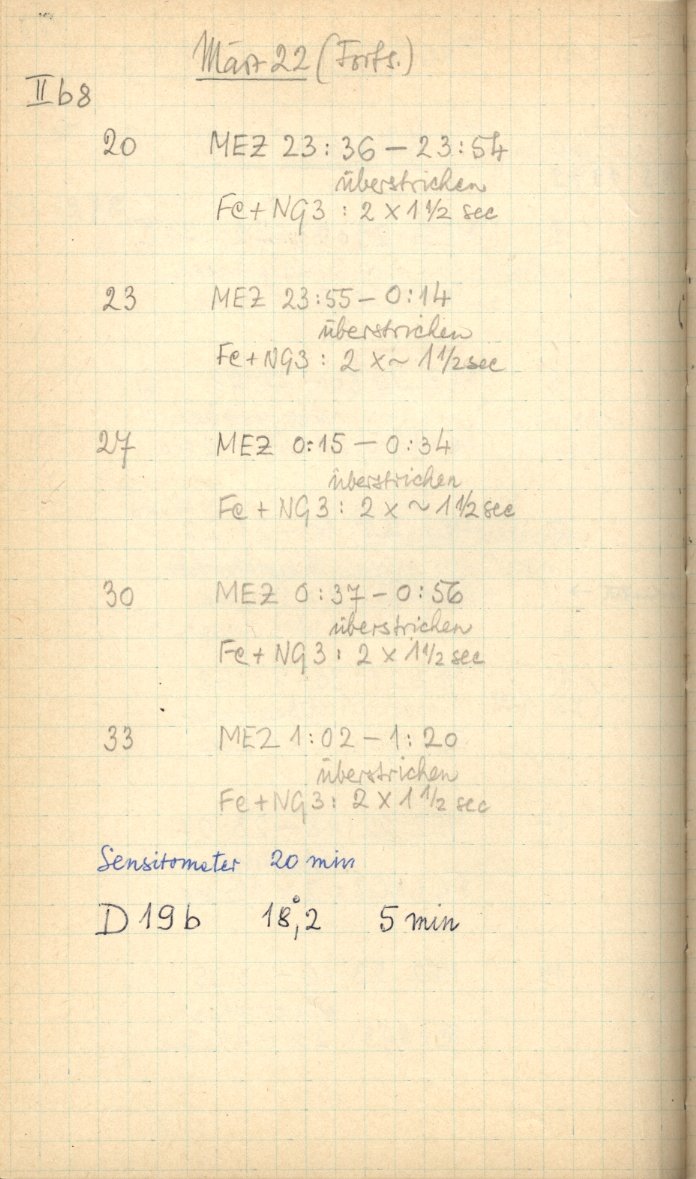 März 22 (Forts.)
II b8
20 MEZ 23:36 – 23:54
überstrichen
Fe + NG3 : 2 x 1 1/2 sec
23 MEZ 23:55 – 0:14
überstrichen
Fe + NG3 : 2 x ~ 1 1/2 sec
27 MEZ 0:15 – 0:34
überstrichen
Fe + NG3 : 2 x ~ 1 1/2 sec
30 MEZ 0:37 – 0:56
überstrichen
Fe + NG3 : 2 x 1 1/2 sec
33 MEZ 1:02 – 1:20
überstrichen
Fe + NG3 : 2 x 1 1/2 sec
Sensitometer 20 min
D 19 b 18°,2 5 min